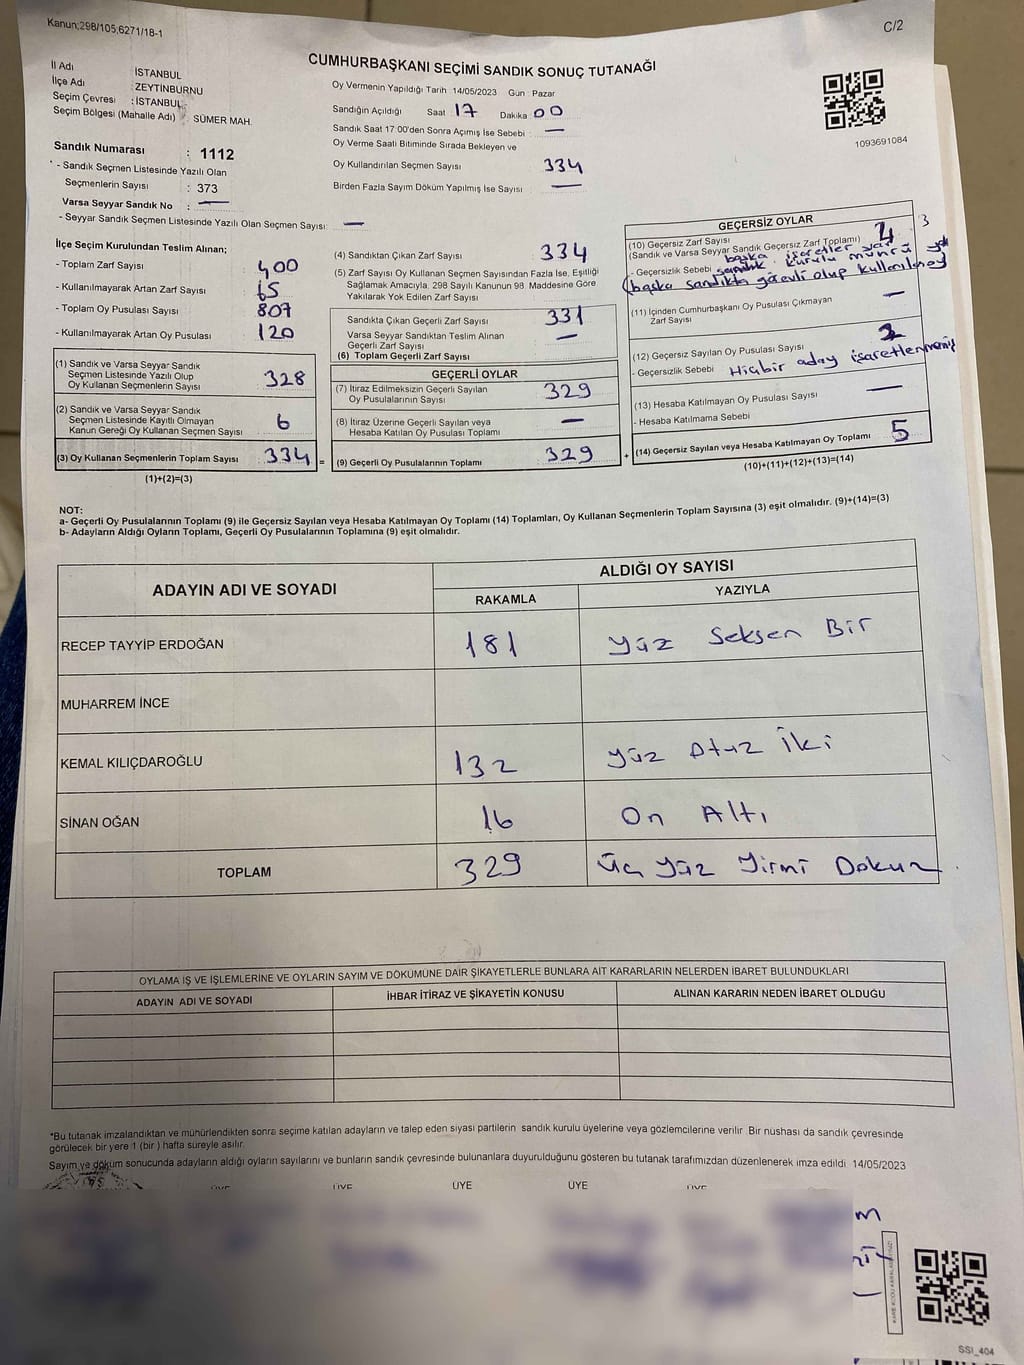 Kanun;298/105,6271/18-1
C/2
CUMHURBAŞKANI SEÇİMİ SANDIK SONUÇ TUTANAĞI
İl Adı İSTANBUL
İlçe Adı ZEYTİNBURNU
Seçim Çevresi : İSTANBUL
Seçim Bölgesi (Mahalle Adı) SÜMER MAH.
Oy Vermenin Yapıldığı Tarih 14/05/2023 Gün : Pazar
Sandığın Açıldığı Saat 17 Dakika 00
Sandık Saat 17:00'den Sonra Açımış İse Sebebi : —
Oy Verme Saati Bitiminde Sırada Bekleyen ve
Oy Kullandırılan Seçmen Sayısı 334
Birden Fazla Sayım Döküm Yapılmış İse Sayısı —
1093691084
Sandık Numarası : 1112
- Sandık Seçmen Listesinde Yazılı Olan
Seçmenlerin Sayısı : 373
Varsa Seyyar Sandık No : —
- Seyyar Sandık Seçmen Listesinde Yazılı Olan Seçmen Sayısı: —
İlçe Seçim Kurulundan Teslim Alınan;
- Toplam Zarf Sayısı 400
- Kullanılmayarak Artan Zarf Sayısı 65
- Toplam Oy Pusulası Sayısı 807
- Kullanılmayarak Artan Oy Pusulası 120
(1) Sandık ve Varsa Seyyar Sandık
Seçmen Listesinde Yazılı Olup
Oy Kullanan Seçmenlerin Sayısı 328
(2) Sandık ve Varsa Seyyar Sandık
Seçmen Listesinde Kayıtlı Olmayan
Kanun Gereği Oy Kullanan Seçmen Sayısı 6
(3) Oy Kullanan Seçmenlerin Toplam Sayısı 334 =
(1)+(2)=(3)
(4) Sandıktan Çıkan Zarf Sayısı 334
(5) Zarf Sayısı Oy Kullanan Seçmen Sayısından Fazla İse, Eşitliği
Sağlamak Amacıyla, 298 Sayılı Kanunun 98. Maddesine Göre
Yakılarak Yok Edilen Zarf Sayısı
Sandıkta Çıkan Geçerli Zarf Sayısı 331
Varsa Seyyar Sandıktan Teslim Alınan
Geçerli Zarf Sayısı —
(6) Toplam Geçerli Zarf Sayısı
GEÇERLİ OYLAR
(7) İtiraz Edilmeksizin Geçerli Sayılan
Oy Pusulalarının Sayısı 329
(8) İtiraz Üzerine Geçerli Sayılan veya
Hesaba Katılan Oy Pusulası Toplamı —
(9) Geçerli Oy Pusulalarının Toplamı 329 +
GEÇERSİZ OYLAR
(10) Geçersiz Zarf Sayısı 3
(Sandık ve Varsa Seyyar Sandık Geçersiz Zarf Toplamı)
- Geçersizlik Sebebi başka işaretler var
sandık kurulu mührü yok
(başka sandıkta görevli olup kullanılan oy
(11) İçinden Cumhurbaşkanı Oy Pusulası Çıkmayan
Zarf Sayısı —
(12) Geçersiz Sayılan Oy Pusulası Sayısı 2
- Geçersizlik Sebebi Hiçbir aday işaretlenmemiş
(13) Hesaba Katılmayan Oy Pusulası Sayısı —
- Hesaba Katılmama Sebebi
(14) Geçersiz Sayılan veya Hesaba Katılmayan Oy Toplamı 5
(10)+(11)+(12)+(13)=(14)
NOT:
a- Geçerli Oy Pusulalarının Toplamı (9) ile Geçersiz Sayılan veya Hesaba Katılmayan Oy Toplamı (14) Toplamları, Oy Kullanan Seçmenlerin Toplam Sayısına (3) eşit olmalıdır. (9)+(14)=(3)
b- Adayların Aldığı Oyların Toplamı, Geçerli Oy Pusulalarının Toplamına (9) eşit olmalıdır.
ADAYIN ADI VE SOYADI
ALDIĞI OY SAYISI
RAKAMLA YAZIYLA
RECEP TAYYİP ERDOĞAN 181 Yüz Seksen Bir
MUHARREM İNCE
KEMAL KILIÇDAROĞLU 132 Yüz Otuz İki
SİNAN OĞAN 16 On Altı
TOPLAM 329 Üç Yüz Yirmi Dokuz
OYLAMA İŞ VE İŞLEMLERİNE VE OYLARIN SAYIM VE DÖKÜMÜNE DAİR ŞİKAYETLERLE BUNLARA AİT KARARLARIN NELERDEN İBARET BULUNDUKLARI
ADAYIN ADI VE SOYADI İHBAR İTİRAZ VE ŞİKAYETİN KONUSU ALINAN KARARIN NEDEN İBARET OLDUĞU
*Bu tutanak imzalandıktan ve mühürlendikten sonra seçime katılan adayların ve talep eden siyasi partilerin sandık kurulu üyelerine veya gözlemcilerine verilir. Bir nüshası da sandık çevresinde
görülecek bir yere 1 (bir ) hafta süreyle asılır.
Sayım ve döküm sonucunda adayların aldığı oyların sayılarını ve bunların sandık çevresinde bulunanlara duyurulduğunu gösteren bu tutanak tarafımızdan düzenlenerek imza edildi 14/05/2023
ÜYE ÜYE ÜYE ÜYE ÜYE
SSI_404